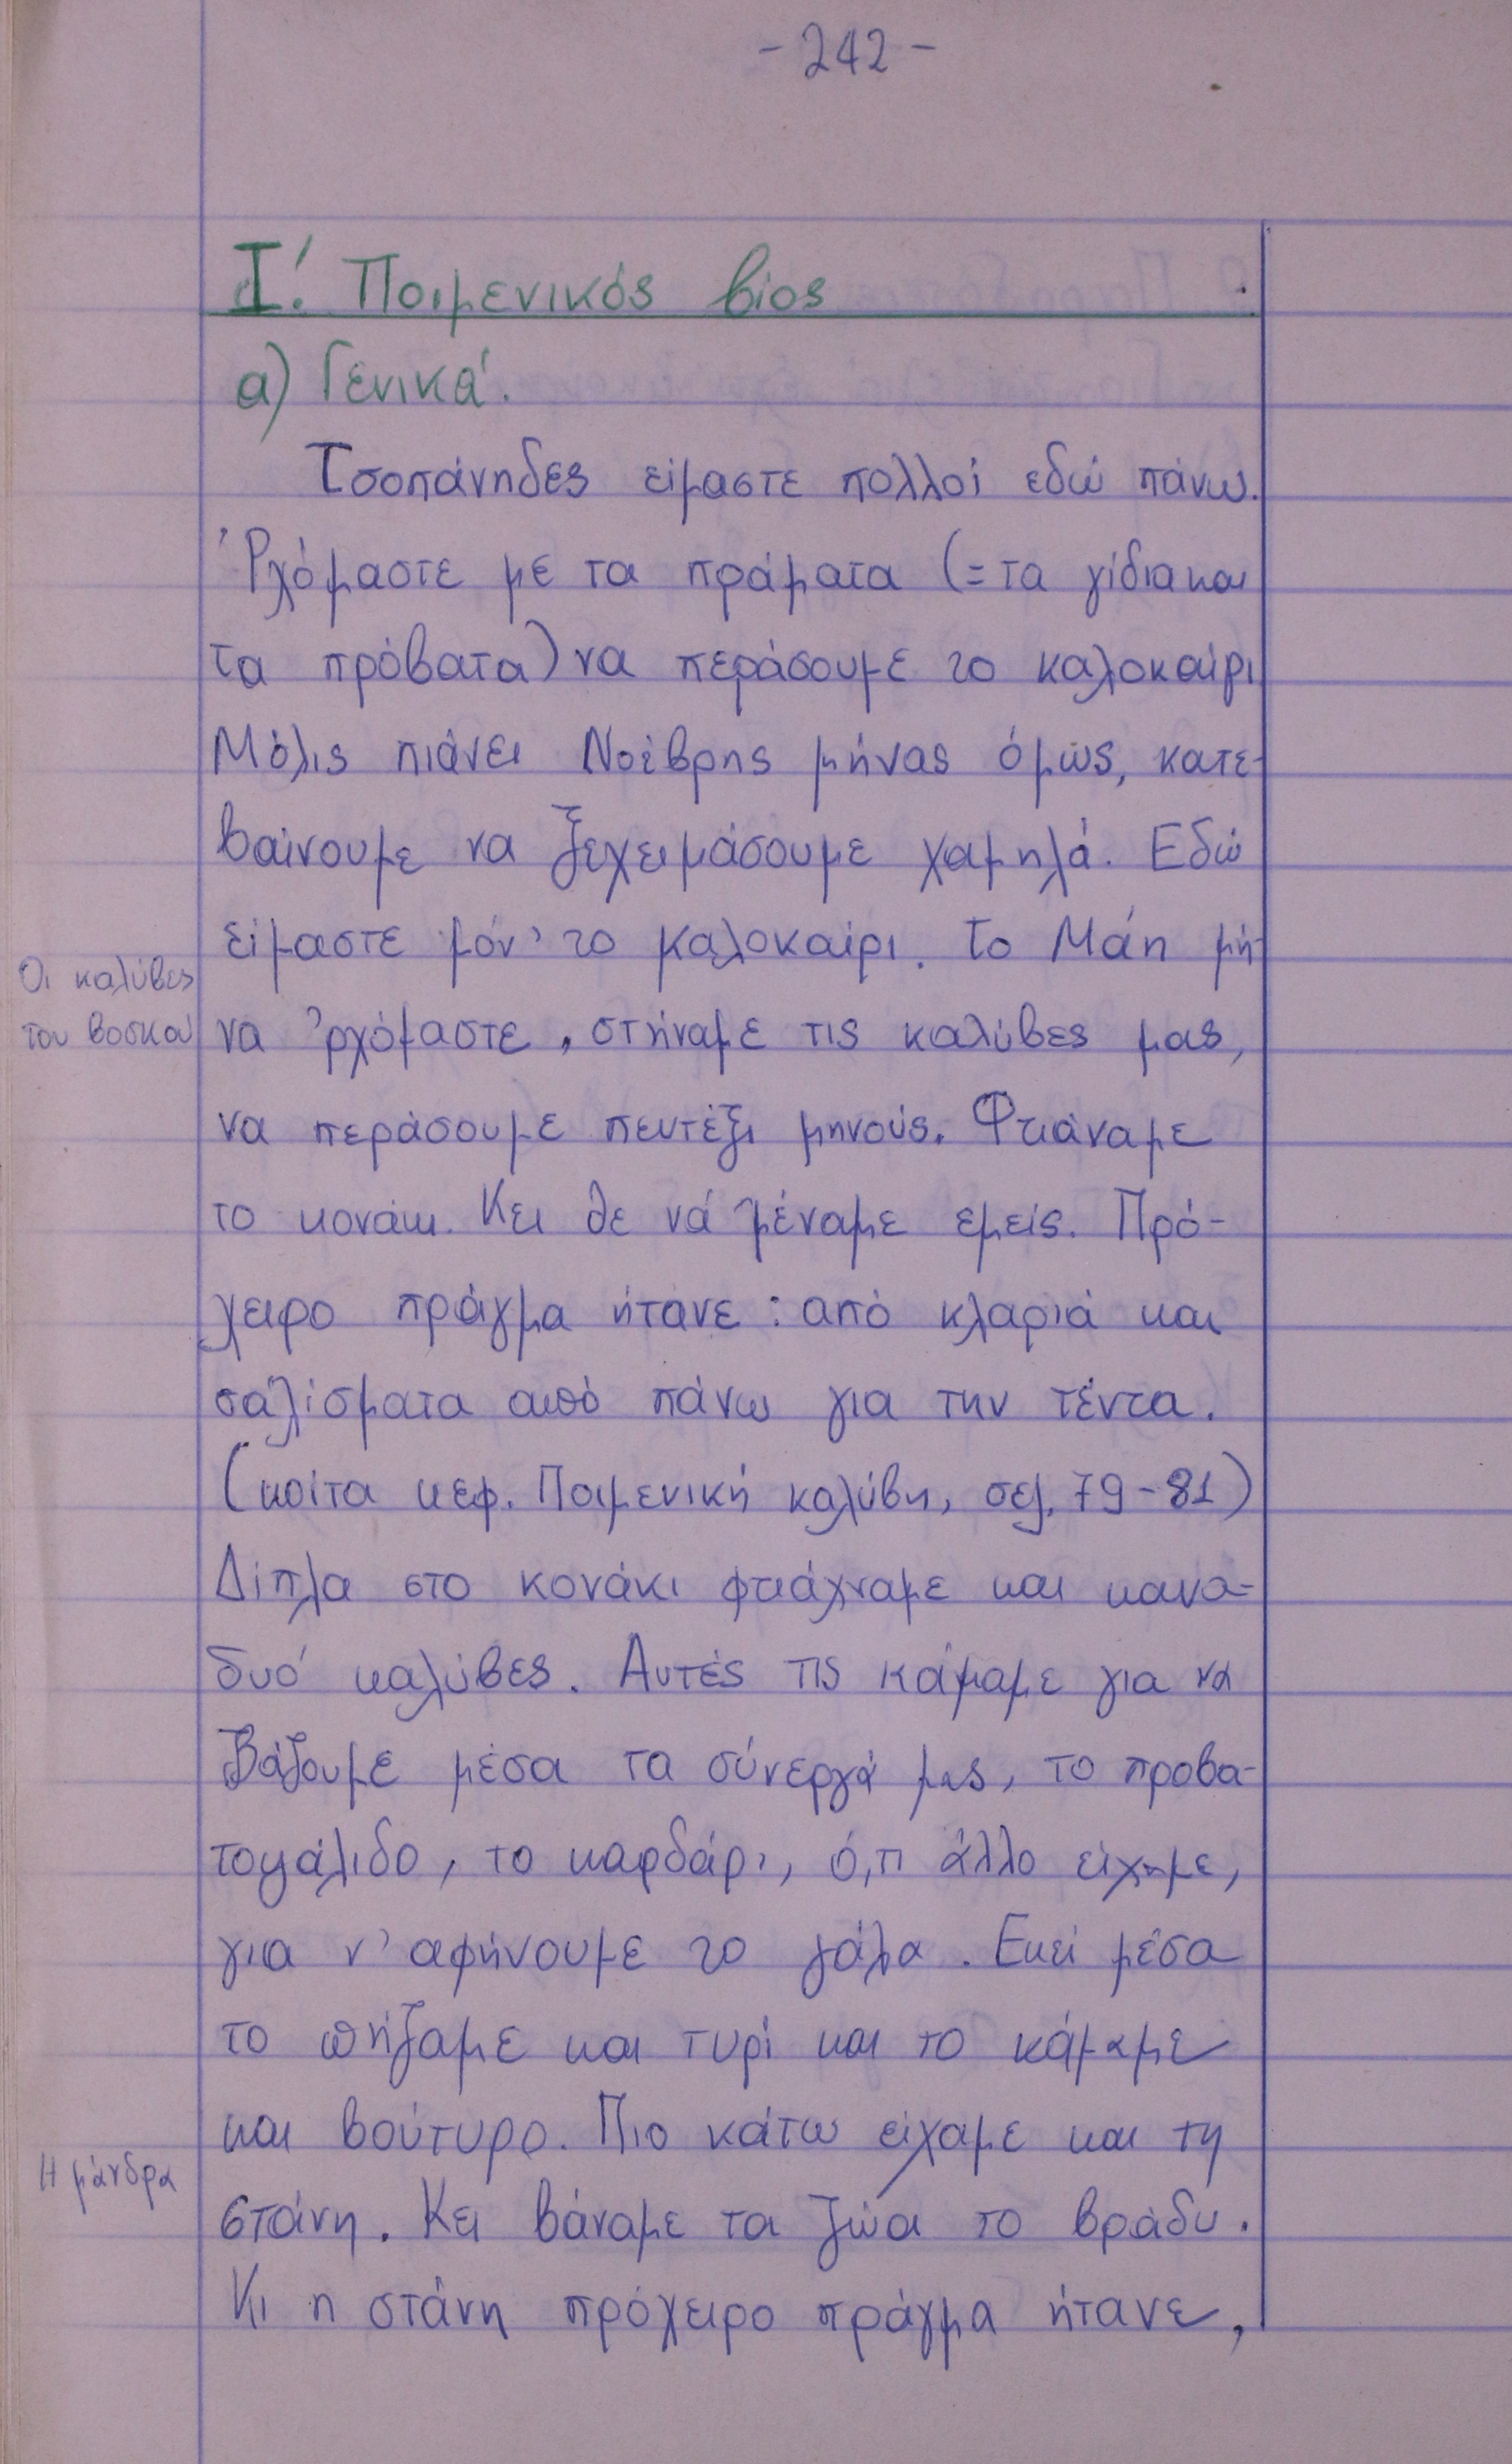 - 242 -
Ι΄. Ποιμενικός βίος
α) Γενικά.
Τσοπάνηδες είμαστε πολλοί εδώ πάνω.
'Ρχόμαστε με τα πράματα (= τα γίδια και
τα πρόβατα) να περάσουμε το καλοκαίρι
Μόλις πιάνει Νοέβρης μήνας όμως, κατε-
βαίνουμε να ξεχειμάσουμε χαμηλά. Εδώ
είμαστε μόν' το καλοκαίρι. Το Μάη μή-
Οι καλύβες
του βοσκού
να 'ρχόμαστε, στήναμε τις καλύβες μας,
να περάσουμε πεντέξι μηνούς. Φτιάναμε
το κονάκι. Κει θε νά μέναμε εμείς. Πρό-
χειρο πράγμα ήτανε: από κλαριά και
σαλίσματα από πάνω για την τέντα.
(κοίτα κεφ. Ποιμενική καλύβη, σελ. 79-81)
Δίπλα στο κονάκι φτιάχναμε και κανα-
δυό καλύβες. Αυτές τις κάμαμε για να
βάζουμε μέσα τα σύνεργά μας, το προβα-
τοψάλιδο, το καρδάρι, ό,τι άλλο είχαμε,
για ν' αφήνουμε το γάλα. Εκεί μέσα
το πήζαμε και τυρί και το κάμαμε
και βούτυρο. Πιο κάτω είχαμε και τη
Η μάνδρα
στάνη. Κει βάναμε τα ζώα το βράδυ.
Κι η στάνη πρόχειρο πράγμα ήτανε,